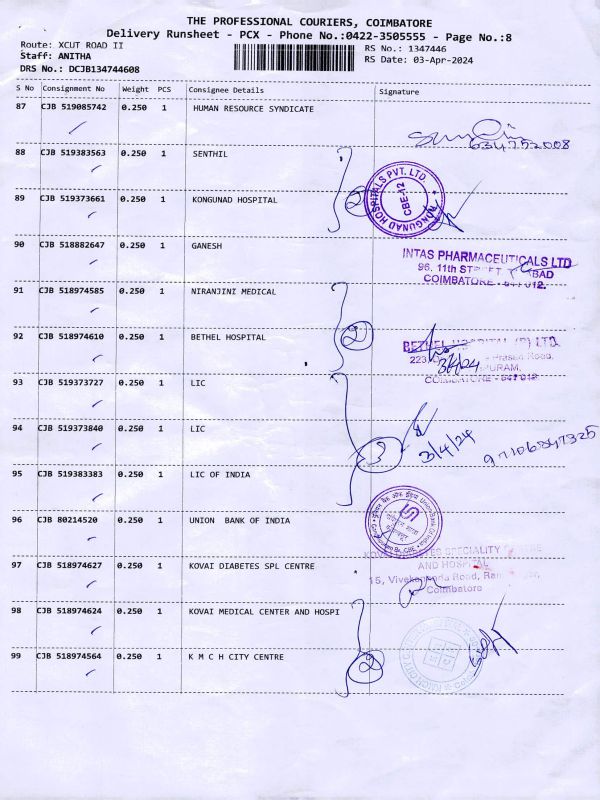 THE PROFESSIONAL COURIERS, COIMBATORE
Delivery Runsheet - PCX - Phone No.:0422-3505555 - Page No.:8
Route: XCUT ROAD II
RS No.: 1347446
Staff: ANITHA
RS Date: 03-Apr-2024
DRS No.: DCJB134744608
S No Consignment No Weight PCS Consignee Details Signature
87 CJB 519085742 0.250 1 HUMAN RESOURCE SYNDICATE
88 CJB 519383563 0.250 1 SENTHIL
89 CJB 519373661 0.250 1 KONGUNAD HOSPITAL 2
KONGUNAD HOSPITALS PVT. LTD. CBE-12
90 CJB 518882647 0.250 1 GANESH
INTAS PHARMACEUTICALS LTD
96, 11th
COIMBATORE
91 CJB 518974585 0.250 1 NIRANJINI MEDICAL
92 CJB 518974610 0.250 1 BETHEL HOSPITAL 2
BETHEL
3/4/24
COIMBATORE - 641 012
93 CJB 519373727 0.250 1 LIC
94 CJB 519373840 0.250 1 LIC 3
3/4/24
95 CJB 519383383 0.250 1 LIC OF INDIA
96 CJB 80214520 0.250 1 UNION BANK OF INDIA
97 CJB 518974627 0.250 1 KOVAI DIABETES SPL CENTRE
KOVAI DIABETES SPECIALITY CENTRE
AND HOSPITAL
15, Vivekananda Road,
Coimbatore
98 CJB 518974624 0.250 1 KOVAI MEDICAL CENTER AND HOSPI
99 CJB 518974564 0.250 1 K M C H CITY CENTRE 2